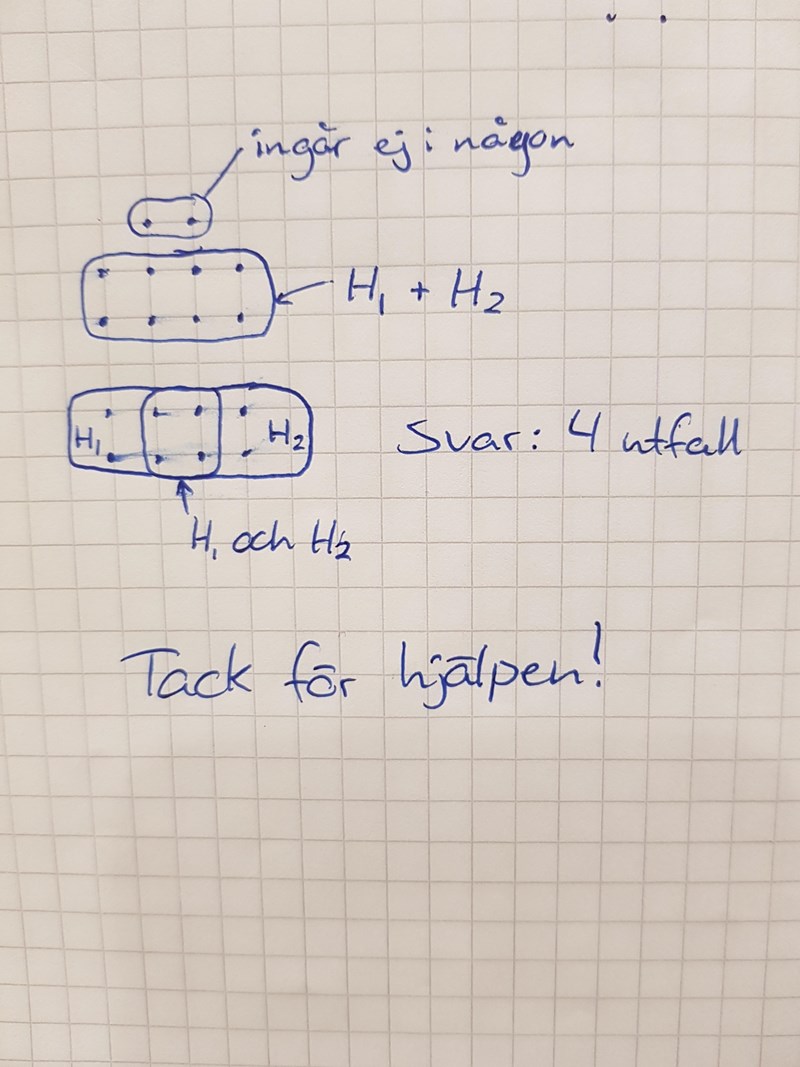 ingår ej i någon
H₁ + H₂
H₁ H₂
Svar: 4 utfall
H₁ och H₂
Tack för hjälpen!